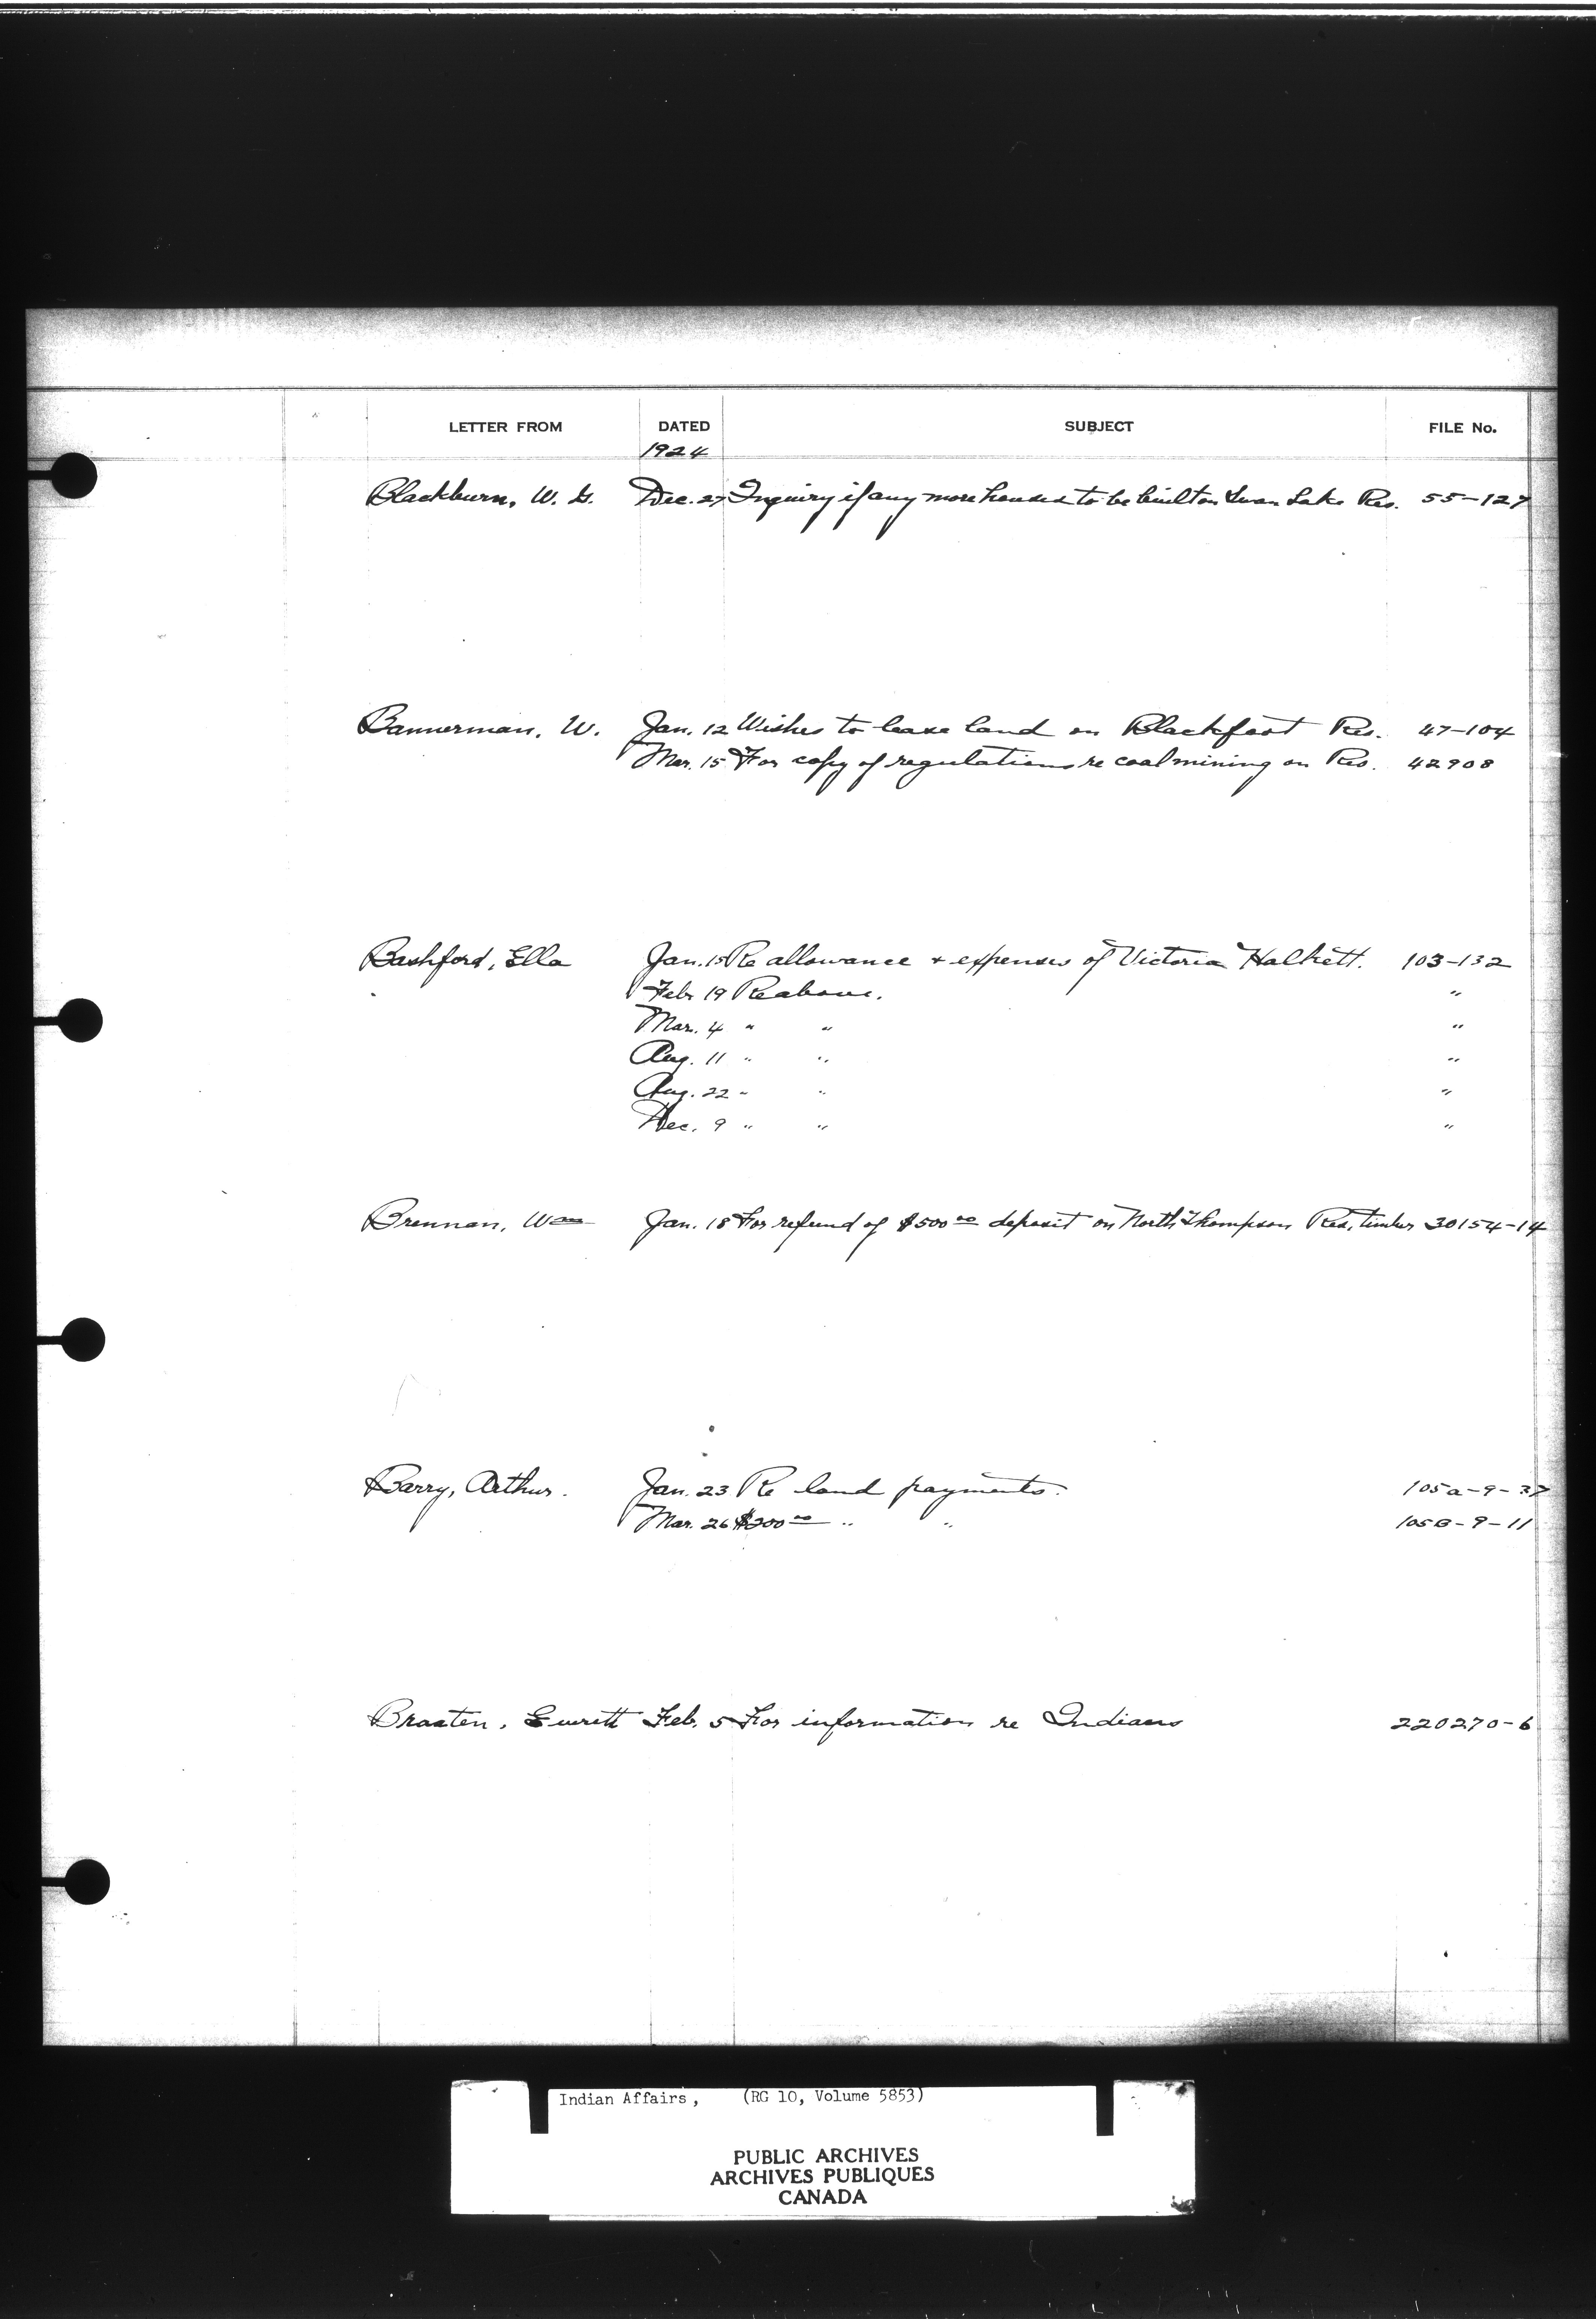 LETTER FROM DATED SUBJECT FILE No.
1924
Blackburn, W. G. Dec. 27 Inquiry if any more houses to be built on Swan Lake Res. 55-127
Bannerman, W. Jan. 12 Wishes to lease land on Blackfoot Res. 47-104
Mar. 15 For copy of regulations re coal mining on Res. 42908
Bashford, Ella Jan. 15 Re allowance + expenses of Victoria Halkett. 103-132
Feb. 19 Re above. "
Mar. 4 " " "
Aug. 11 " " "
Aug. 22 " " "
Dec. 9 " " "
Brennan, Wm Jan. 18 For refund of $500.00 deposit on North Thompson Res. timber 30154-14
Barry, Arthur. Jan. 23 Re land payments. 105a-9-37
Mar. 26 $200.00 " " 105B-9-11
Braaten, Everett Feb. 5 For information re Indians 220270-6
Indian Affairs, (RG 10, Volume 5853)
PUBLIC ARCHIVES
ARCHIVES PUBLIQUES
CANADA